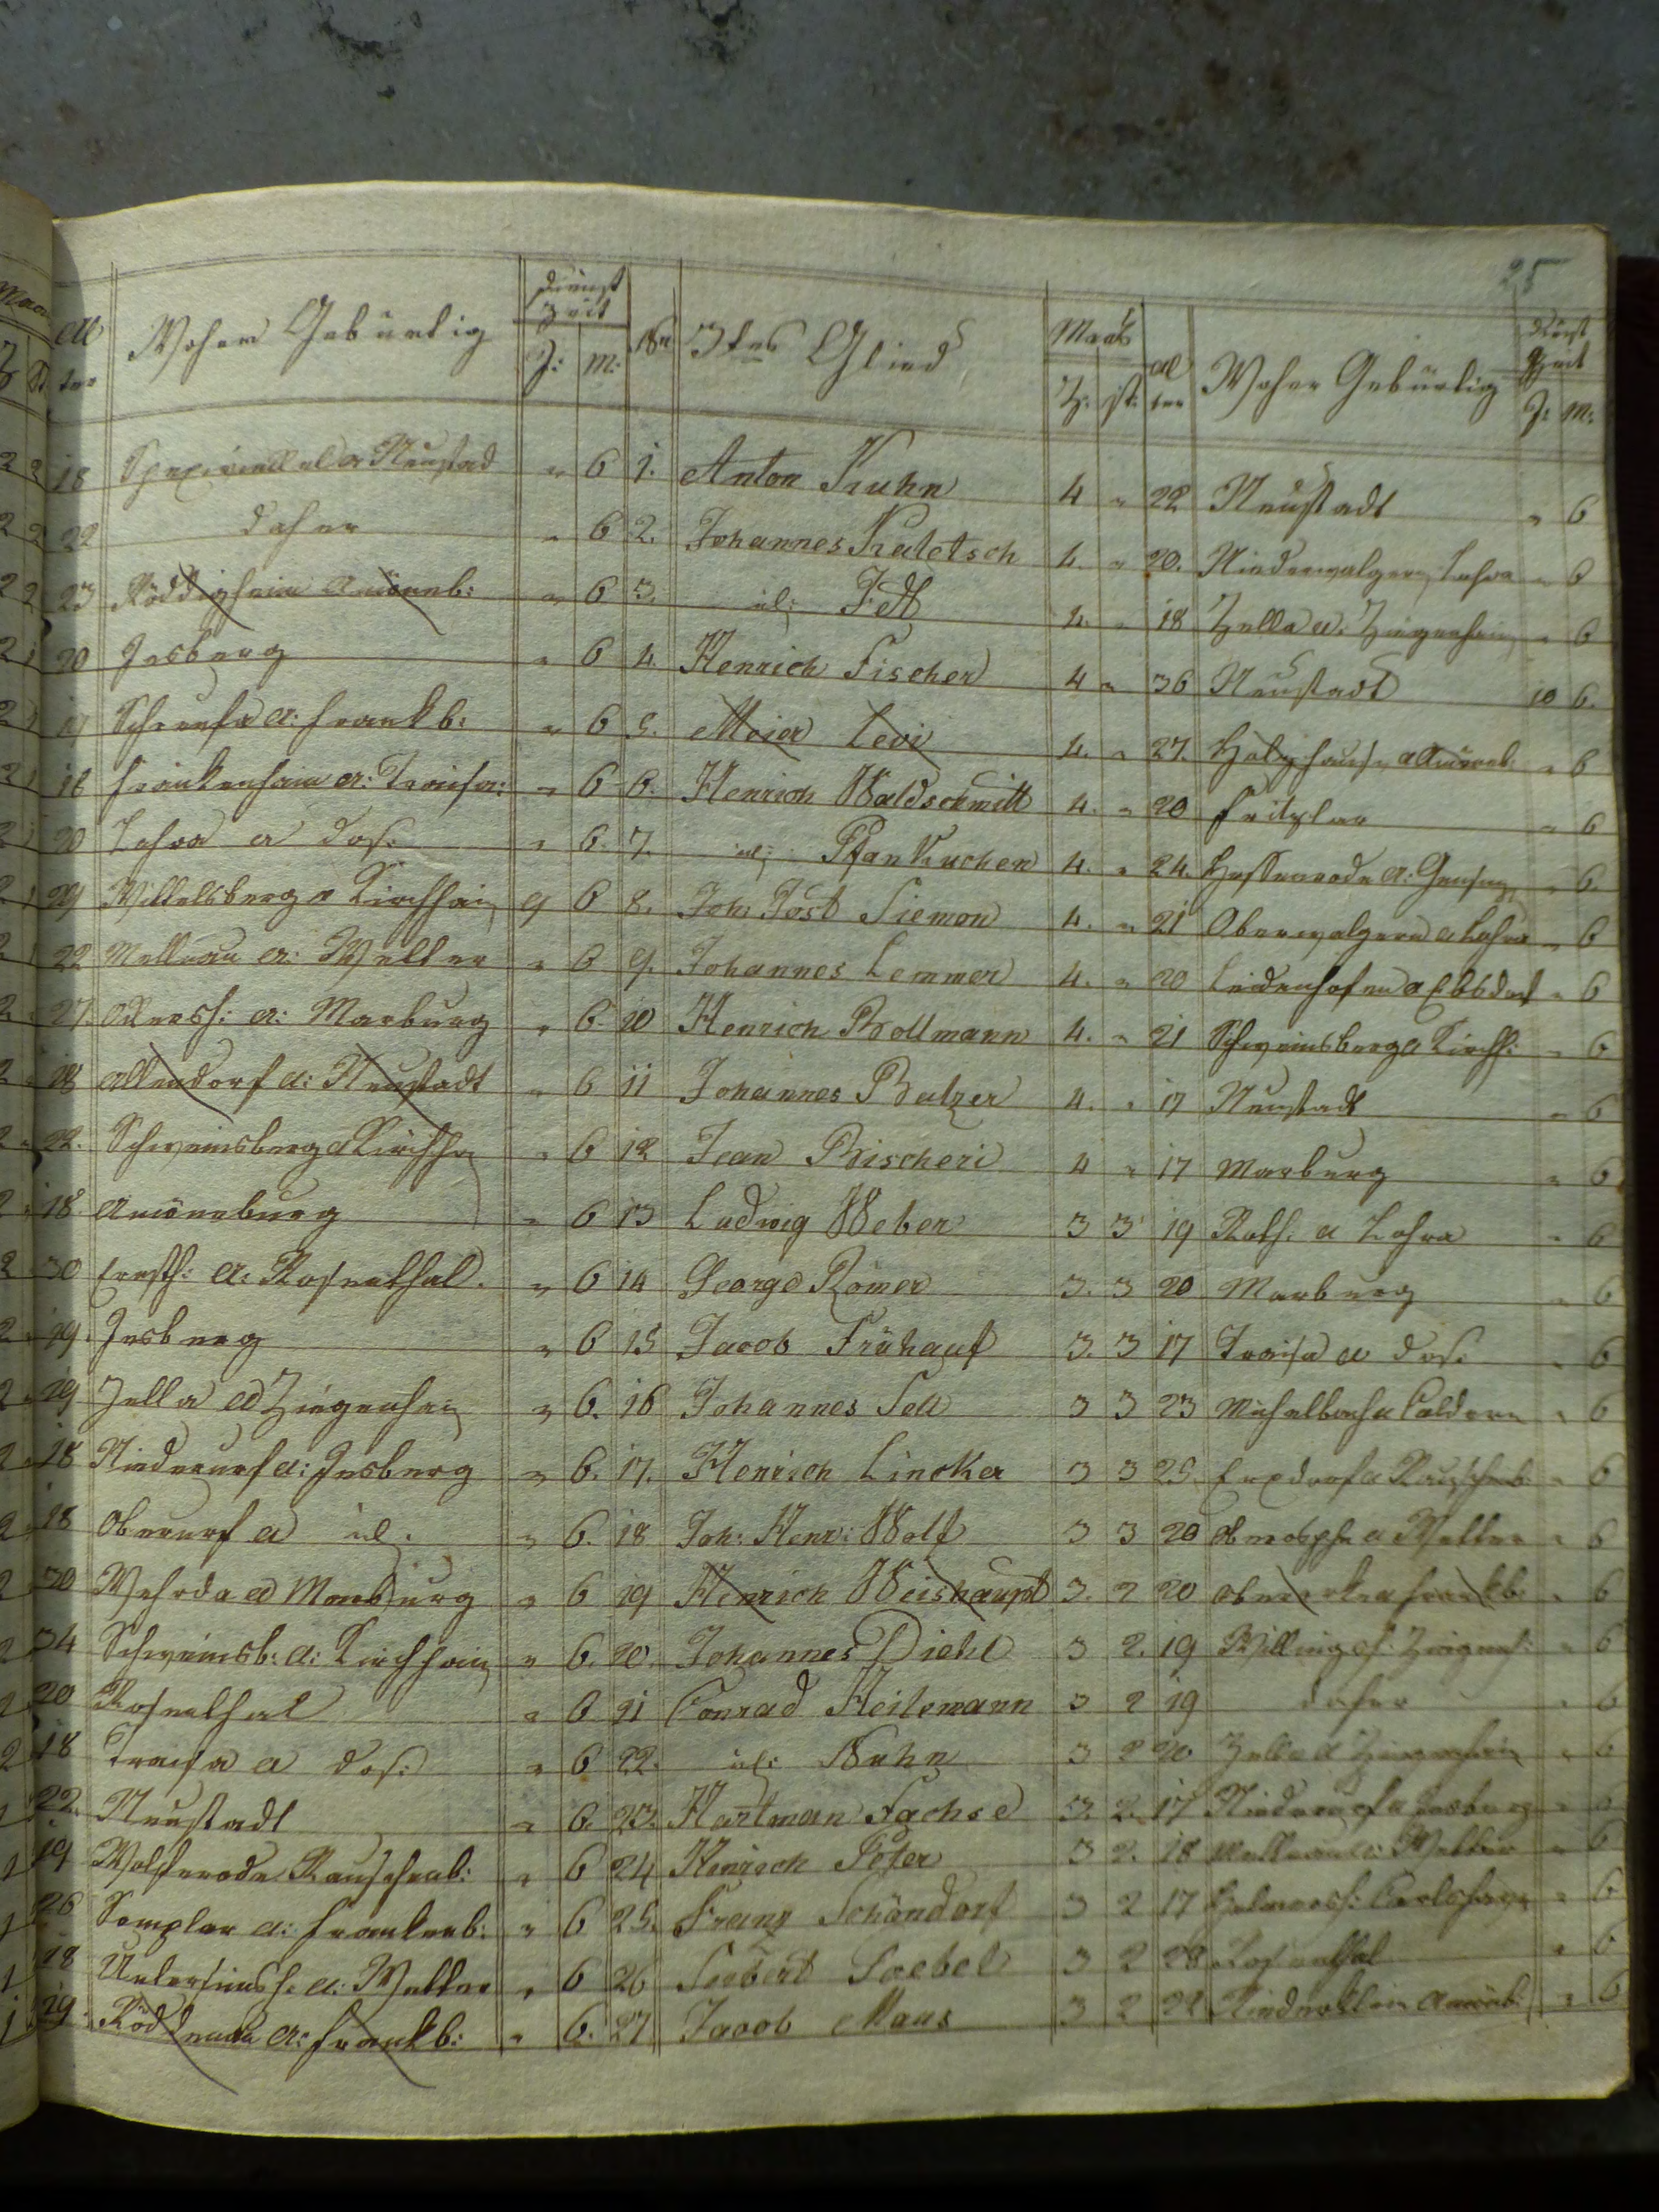 25
Al ter | Woher Gebürtig | Dienst Zeit J: M: | Nr | 3tes Glied | Maas Z: St: | Al ter | Woher Gebürtig | Dienst Zeit J: M:
18 Neustad " 6 1. Anton Kuhn 4 " 22 Neustadt " 6
22 daher " 6 2. Johannes Kaletsch 4. " 20. Niederwalgern Lohra " 6
23 Röddigheim Amöneb: " 6 3. id: Fett 4. " 18 Zella A: Ziegenhain " 6
20 Jesberg " 6 4. Henrich Fischer 4 " 36 Neustadt 10 6.
19 Schreufa A: Frankb: " 6 5. Meier Levi 4. " 27. Holzhause A Amöneb: " 6
18 Frankenhain A: Treisa: " 6 6. Henrich Waldschmitt 4. " 20 Fritzlar " 6
20 Lohra A das: " 6. 7. id: Pfankuchen 4. " 24. A: " 6.
29 Wittelsberg A Kirchhain 9 6 8. Joh: Jost Siemon 4. " 21 Oberwalgern A Lohra " 6
22 Mellnau A: Wetter " 6 9. Johannes Lemmer 4. " 20 Leidenhofen A Ebsdorf " 6
27. Ockersh: A: Marburg " 6. 10 Henrich Bollmann 4. " 21 Schweinsberg A Kirchh: " 6
18 Allendorf A: Neustadt " 6 11 Johannes Balzer 4. " 17 Neustadt " 6
22. Schweinsberg A Kirchhn " 6 12 Jean Bischeri 4 " 17 Marburg " 6
18 Amöneburg " 6 13 Ludwig Weber 3 3 19 Roth: A Lohra " 6
30 Ernsth: A: Rosenthal. " 6 14 George Römer 3. 3 20 Marburg " 6
19. Jesberg " 6 15 Jacob Frühauf 3. 3 17 Treisa A das: " 6
19 Zella A Ziegenhain " 6. 16 Johannes Sell 3 3 23 Michelbach A Caldern " 6
18 Niederurf A: Jesberg " 6. 17. Henrich Lincker 3 3 25. Erxdorf A Rauschenb: " 6
18 Oberurf A id: " 6. 18 Joh: Henr: Wolf 3 3 20 Oberosphe A Wetter " 6
30 Wehrda A Marburg " 6 19 Henrich Weishaupt 3. 2 20 A Frankb: " 6
34 Schweinsb: A: Kirchhain " 6. 20. Johannes Diehl 3 2. 19 Willingsh: Ziegenh: " 6
20 Rosenthal " 6 21 Conrad Heilemann 3 2 19 daher " 6
18 Treisa A das: " 6 22. id: Kuhn 3 2 20 Zella A Ziegenhain " 6
22. Neustadt " 6. 23. Hartman Fachse 3. 2. 17 Niederurf A Jesberg " 6
19 Wolferode Rauschenb: " 6 24 Henrich Peter 3 2. 18 Mellnau A: Wetter " 6
26 Somplar A: Frankenb: " 6 25. Franz Schöndorf 3 2 17 Helmarsh: Carlshafen " 6
18 Untersimsh: A: Wetter " 6 26 Siebert Goebel 3 2 28 Rosenthal " 6
19. Röddenau A: Frankb: " 6. 27. Jacob Maus 3 2 22 Niederklein Amöneb: " 6